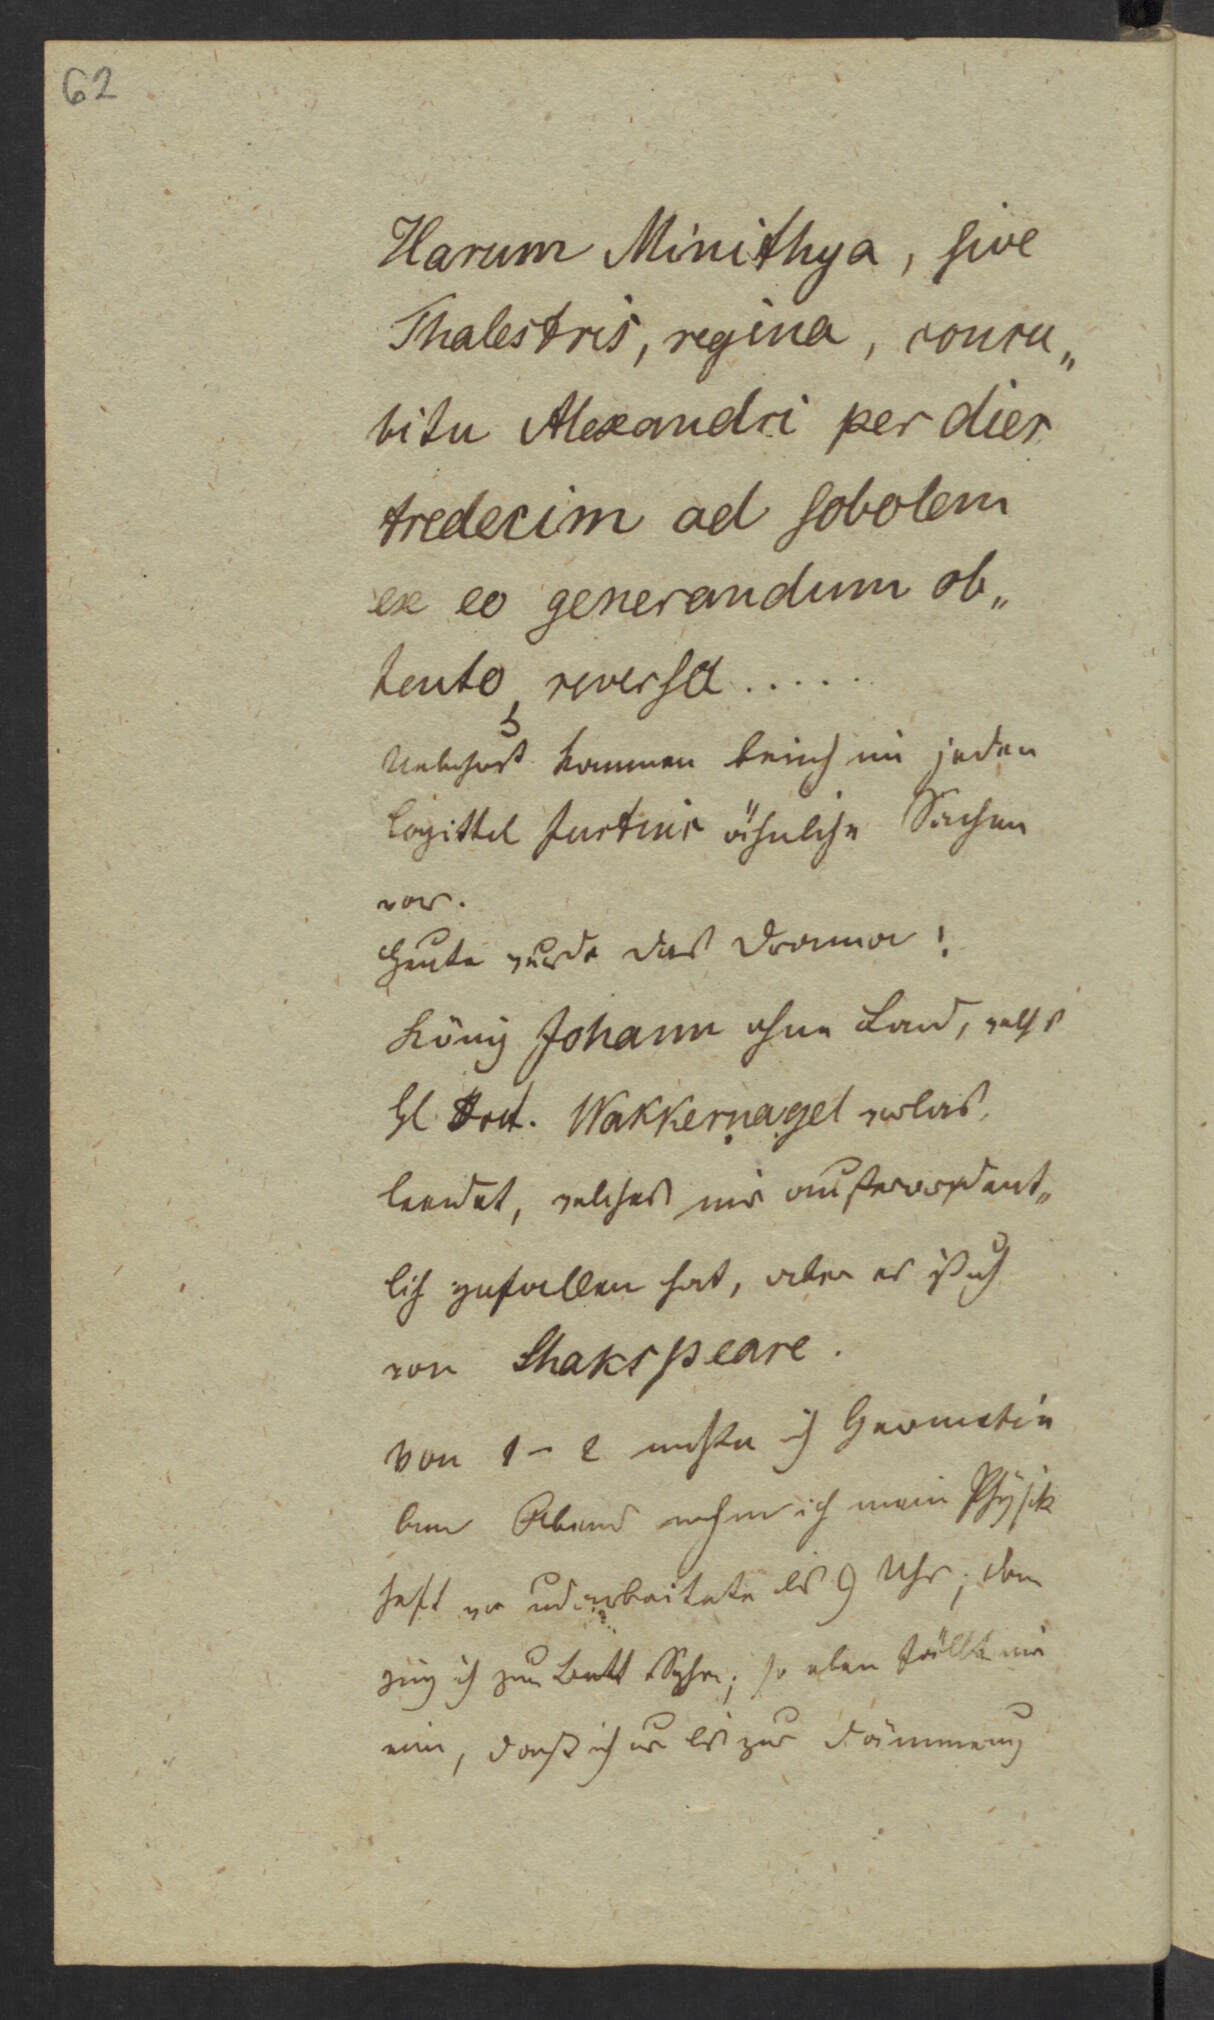 62
Harum Minithya, sive
Thalestris, regina, concu„
bitu Alexandri per dies
tredecim ad sobolem
ex eo generandum ob„
tento, reversa.....
Ueberhaupt kommen beinah in jedem
Capittel Justins ähnliche Sachen
vor.
Heute wurde das Drama!
König Johann ohne Land, welches
Wakkernagel vorlas,
beendet, welches mir außerordent„
lich gefallen hat, aber es ist auch
von Shakspeare.
Von 1 - 2 mußte ich Geometrie
Abend nahm ich mein Physik
heft vor und arbeitete bis 9 Uhr; dann
ging ich zum Bett so eben fällt mir
ein, daß ich bis zur Dämmerung